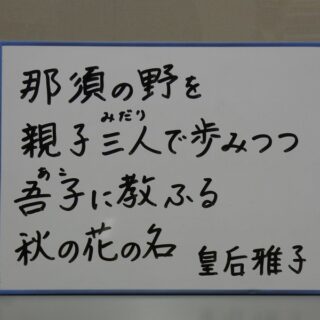 那須の野を
親子三人で歩みつつ
吾子に教ふる
秋の花の名
皇后雅子
みだり
あこ